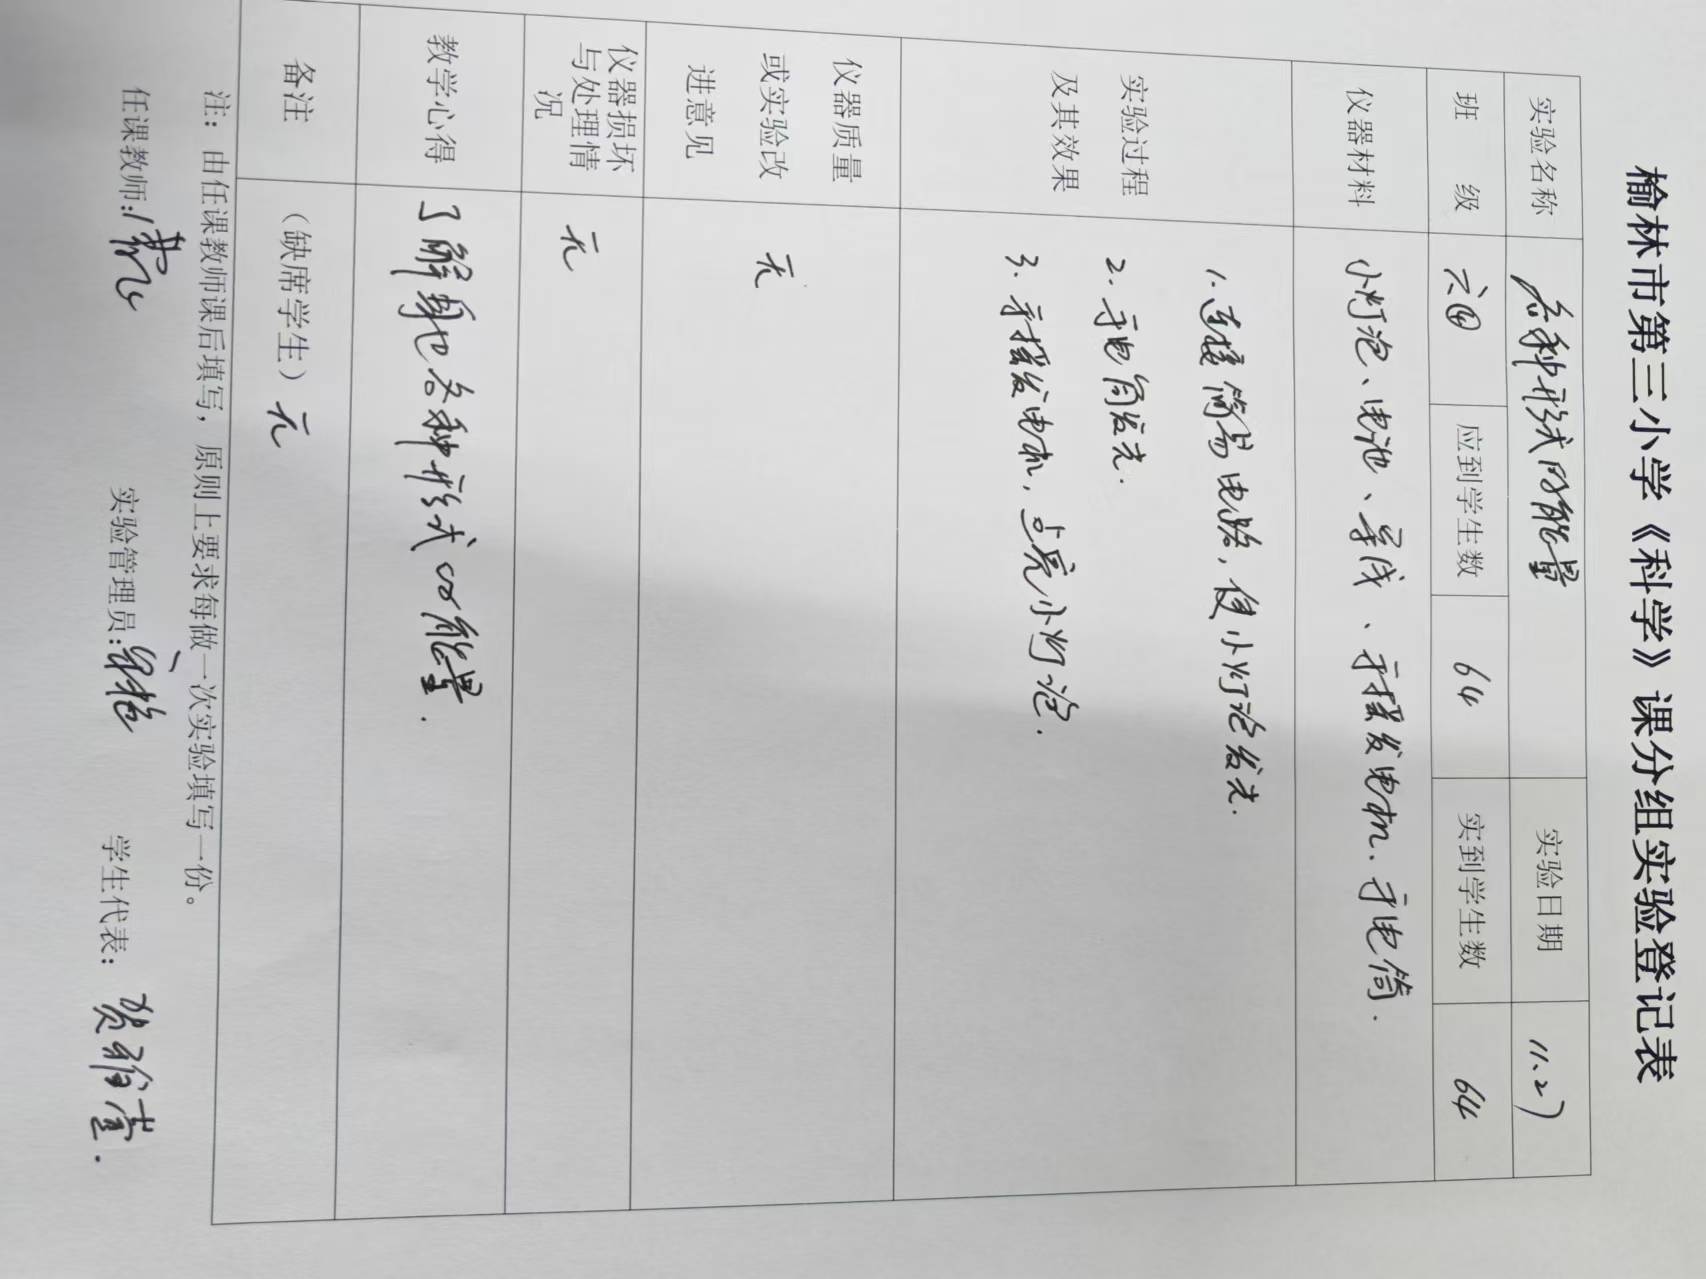 榆林市第三小学《科学》课分组实验登记表
实验名称 各种形式的能量 实验日期 11.27
班 级 六④ 应到学生数 64 实到学生数 64
仪器材料 小灯泡、电池、导线、手摇发电机、手电筒.
实验过程
及其效果
1.连接简易电路，使小灯泡发光.
2.手电筒发光.
3.手摇发电机，点亮小灯泡.
仪器质量
或实验改
进意见
无
仪器损坏
与处理情
况
无
教学心得 了解其他各种形式的能量.
备注 （缺席学生）无
注：由任课教师课后填写，原则上要求每做一次实验填写一份。
任课教师: 实验管理员: 学生代表：贺雅萱.